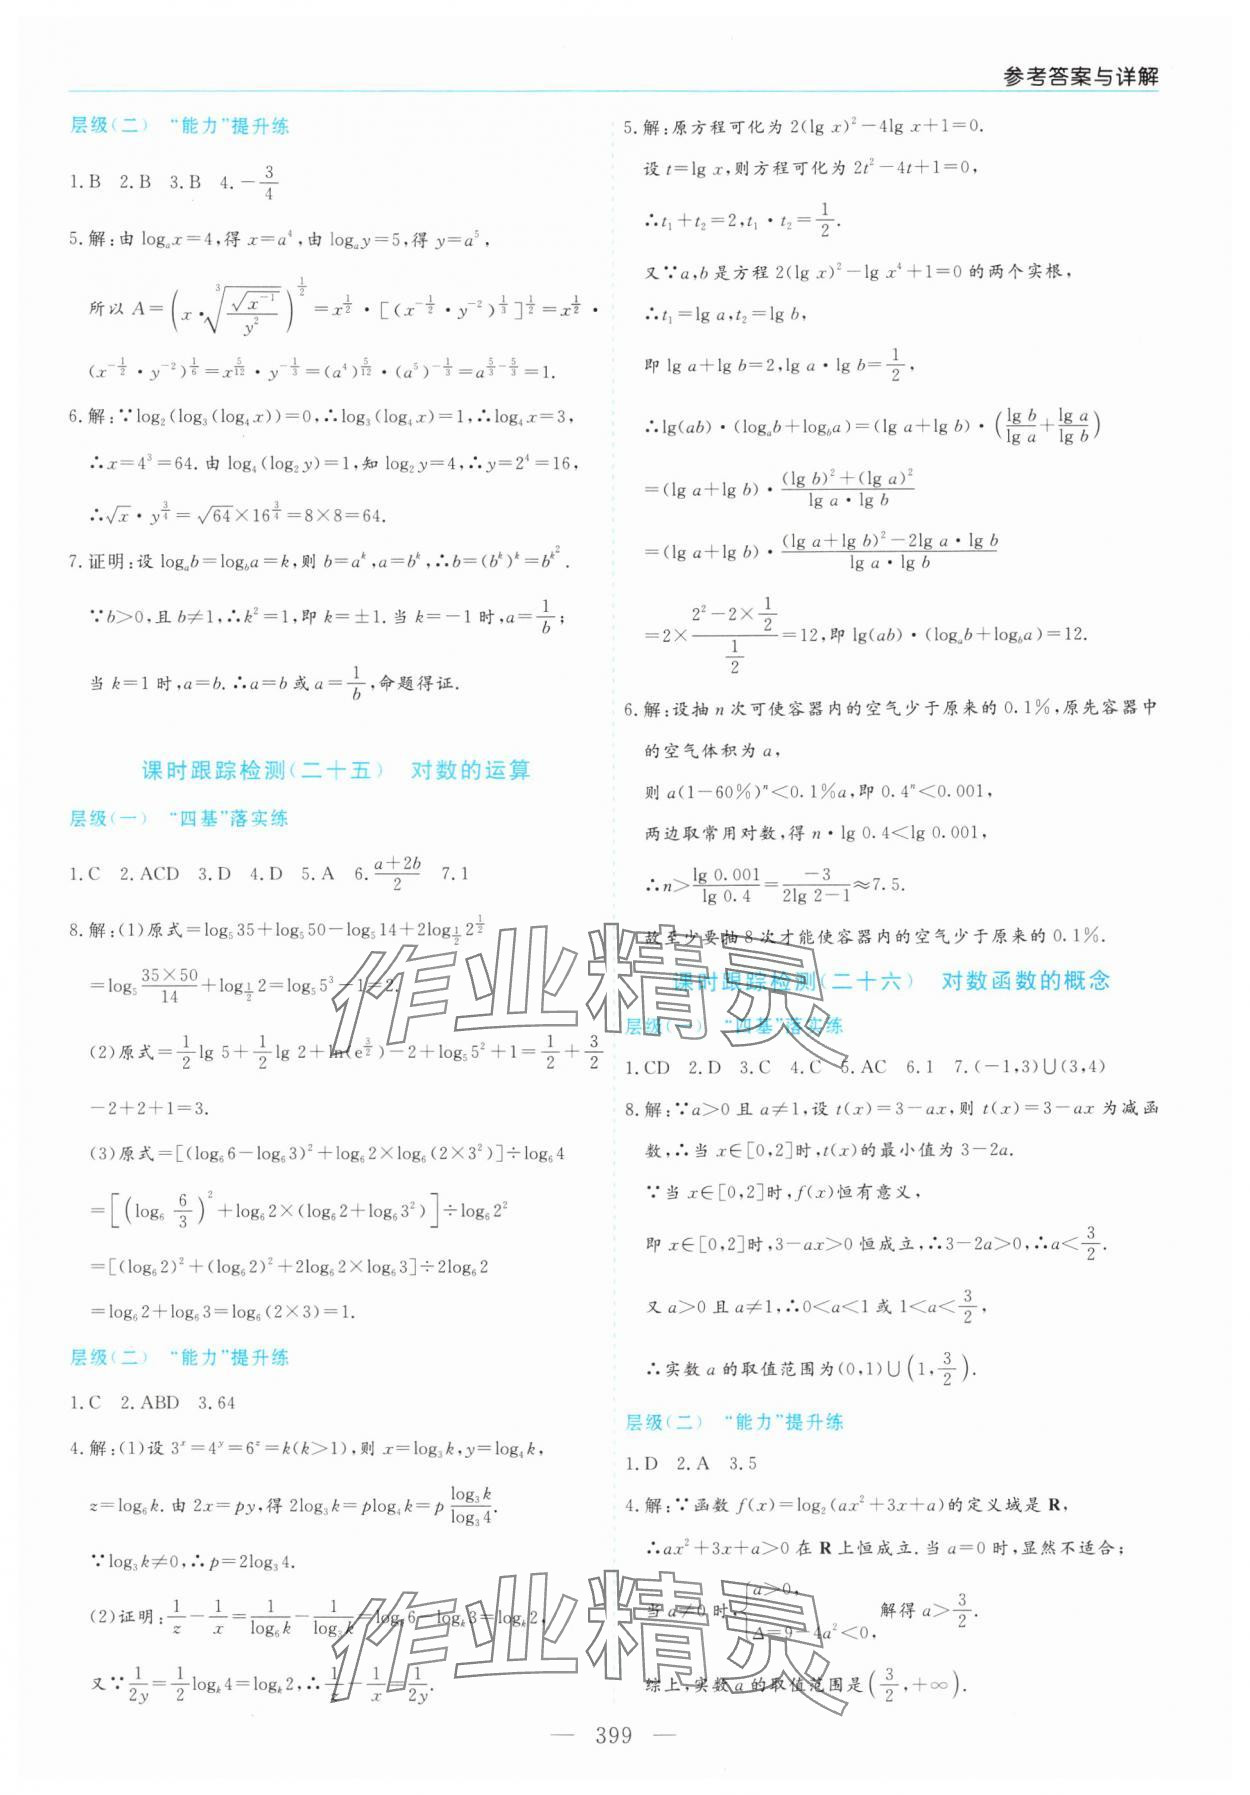 参考答案与详解
层级(二) “能力”提升练
1.B 2.B 3.B 4.$-\frac{3}{4}$
5.解:由 $\log_a x=4$,得 $x=a^4$,由 $\log_a y=5$,得 $y=a^5$,
所以 $A=\left(x\cdot\sqrt[3]{\frac{\sqrt{x^{-1}}}{y^2}}\right)^{\frac{1}{2}}=x^{\frac{1}{2}}\cdot[(x^{-\frac{1}{2}}\cdot y^{-2})^{\frac{1}{3}}]^{\frac{1}{2}}=x^{\frac{1}{2}}\cdot$
$(x^{-\frac{1}{2}}\cdot y^{-2})^{\frac{1}{6}}=x^{\frac{5}{12}}\cdot y^{-\frac{1}{3}}=(a^4)^{\frac{5}{12}}\cdot(a^5)^{-\frac{1}{3}}=a^{\frac{5}{3}-\frac{5}{3}}=1.$
6.解:∵$\log_2(\log_3(\log_4 x))=0$,∴$\log_3(\log_4 x)=1$,∴$\log_4 x=3$,
∴$x=4^3=64$.由 $\log_4(\log_2 y)=1$,知 $\log_2 y=4$,∴$y=2^4=16$,
∴$\sqrt{x}\cdot y^{\frac{3}{4}}=\sqrt{64}\times 16^{\frac{3}{4}}=8\times 8=64.$
7.证明:设 $\log_a b=\log_b a=k$,则 $b=a^k$,$a=b^k$,∴$b=(b^k)^k=b^{k^2}$.
∵$b>0$,且 $b\neq 1$,∴$k^2=1$,即 $k=\pm 1$.当 $k=-1$ 时,$a=\frac{1}{b}$;
当 $k=1$ 时,$a=b$.∴$a=b$ 或 $a=\frac{1}{b}$,命题得证.
课时跟踪检测(二十五) 对数的运算
层级(一) “四基”落实练
1.C 2.ACD 3.D 4.D 5.A 6.$\frac{a+2b}{2}$ 7.1
8.解:(1)原式$=\log_5 35+\log_5 50-\log_5 14+2\log_{\frac{1}{2}}2^{\frac{1}{2}}$
$=\log_5\frac{35\times 50}{14}+\log_{\frac{1}{2}}2=\log_5 5^3-1=2.$
(2)原式$=\frac{1}{2}\lg 5+\frac{1}{2}\lg 2+\ln(e^{\frac{3}{2}})-2+\log_5 5^2+1=\frac{1}{2}+\frac{3}{2}$
$-2+2+1=3.$
(3)原式$=[(\log_6 6-\log_6 3)^2+\log_6 2\times\log_6(2\times 3^2)]\div\log_6 4$
$=\left[\left(\log_6\frac{6}{3}\right)^2+\log_6 2\times(\log_6 2+\log_6 3^2)\right]\div\log_6 2^2$
$=[(\log_6 2)^2+(\log_6 2)^2+2\log_6 2\times\log_6 3]\div 2\log_6 2$
$=\log_6 2+\log_6 3=\log_6(2\times 3)=1.$
层级(二) “能力”提升练
1.C 2.ABD 3.64
4.解:(1)设 $3^x=4^y=6^z=k(k>1)$,则 $x=\log_3 k$,$y=\log_4 k$,
$z=\log_6 k$.由 $2x=py$,得 $2\log_3 k=p\log_4 k=p\frac{\log_3 k}{\log_3 4}$.
∵$\log_3 k\neq 0$,∴$p=2\log_3 4$.
(2)证明:$\frac{1}{z}-\frac{1}{x}=\frac{1}{\log_6 k}-\frac{1}{\log_3 k}=\log_k 6-\log_k 3=\log_k 2$,
又∵$\frac{1}{2y}=\frac{1}{2}\log_k 4=\log_k 2$,∴$\frac{1}{z}-\frac{1}{x}=\frac{1}{2y}$.
5.解:原方程可化为 $2(\lg x)^2-4\lg x+1=0.$
设 $t=\lg x$,则方程可化为 $2t^2-4t+1=0$,
∴$t_1+t_2=2$,$t_1\cdot t_2=\frac{1}{2}$.
又∵$a,b$ 是方程 $2(\lg x)^2-\lg x^4+1=0$ 的两个实根,
∴$t_1=\lg a$,$t_2=\lg b$,
即 $\lg a+\lg b=2$,$\lg a\cdot\lg b=\frac{1}{2}$,
∴$\lg(ab)\cdot(\log_a b+\log_b a)=(\lg a+\lg b)\cdot\left(\frac{\lg b}{\lg a}+\frac{\lg a}{\lg b}\right)$
$=(\lg a+\lg b)\cdot\frac{(\lg b)^2+(\lg a)^2}{\lg a\cdot\lg b}$
$=(\lg a+\lg b)\cdot\frac{(\lg a+\lg b)^2-2\lg a\cdot\lg b}{\lg a\cdot\lg b}$
$=2\times\frac{2^2-2\times\frac{1}{2}}{\frac{1}{2}}=12$,即 $\lg(ab)\cdot(\log_a b+\log_b a)=12.$
6.解:设抽 $n$ 次可使容器内的空气少于原来的 0.1%,原先容器中
的空气体积为 $a$,
则 $a(1-60\%)^n<0.1\%a$,即 $0.4^n<0.001$,
两边取常用对数,得 $n\cdot\lg 0.4<\lg 0.001$,
∴$n>\frac{\lg 0.001}{\lg 0.4}=\frac{-3}{2\lg 2-1}\approx 7.5.$
故至少要抽 8 次才能使容器内的空气少于原来的 0.1%.
课时跟踪检测(二十六) 对数函数的概念
层级(一) “四基”落实练
1.CD 2.D 3.C 4.C 5.AC 6.1 7.$(-1,3)\cup(3,4)$
8.解:∵$a>0$ 且 $a\neq 1$,设 $t(x)=3-ax$,则 $t(x)=3-ax$ 为减函
数,∴当 $x\in[0,2]$时,$t(x)$的最小值为 $3-2a$.
∵当 $x\in[0,2]$时,$f(x)$恒有意义,
即 $x\in[0,2]$时,$3-ax>0$ 恒成立,∴$3-2a>0$,∴$a<\frac{3}{2}$.
又 $a>0$ 且 $a\neq 1$,∴$0<a<1$ 或 $1<a<\frac{3}{2}$,
∴实数 $a$ 的取值范围为$(0,1)\cup\left(1,\frac{3}{2}\right)$.
层级(二) “能力”提升练
1.D 2.A 3.5
4.解:∵函数 $f(x)=\log_2(ax^2+3x+a)$的定义域是 R,
∴$ax^2+3x+a>0$ 在 R 上恒成立.当 $a=0$ 时,显然不适合;
当 $a\neq 0$ 时,$\begin{cases}a>0,\\ \Delta=9-4a^2<0,\end{cases}$ 解得 $a>\frac{3}{2}$.
综上,实数 $a$ 的取值范围是$\left(\frac{3}{2},+\infty\right)$.
— 399 —
作业精灵
作业精灵